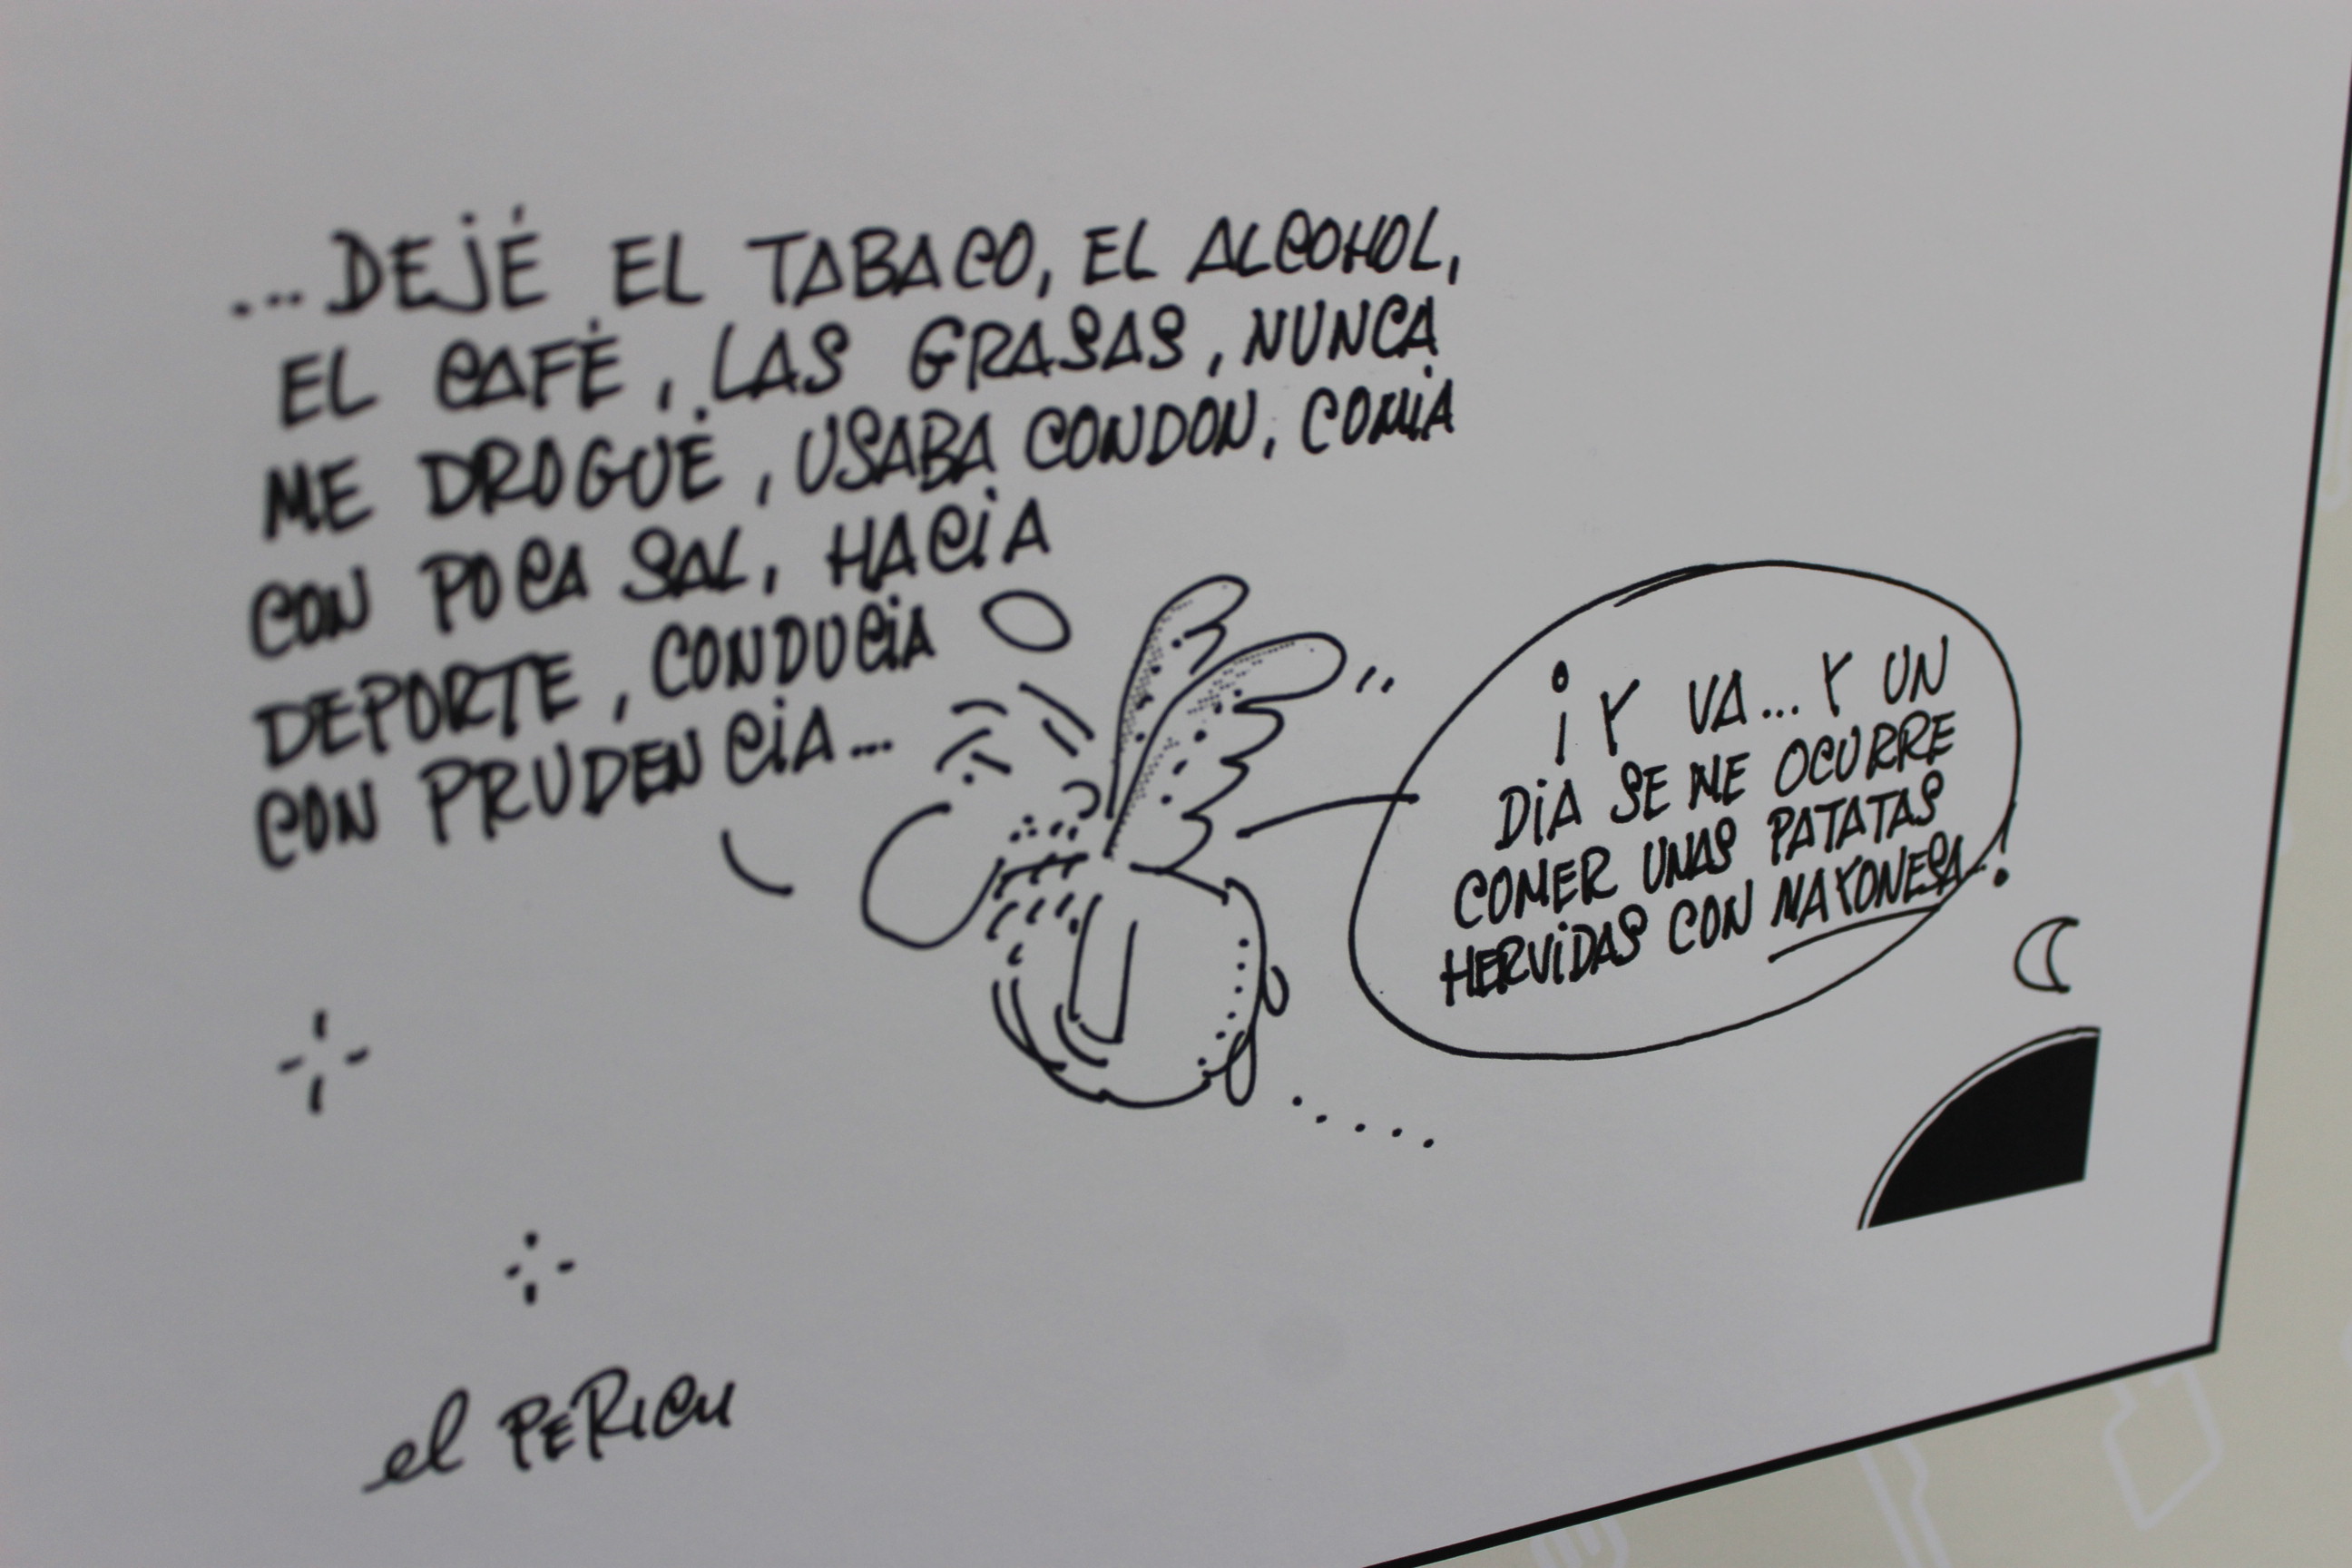 ...DEJÉ EL TABACO, EL ALCOHOL,
EL CAFÉ, LAS GRASAS, NUNCA
ME DROGUÉ, USABA CONDON, COMÍA
CON POCA SAL, HACÍA
DEPORTE, CONDUCÍA
CON PRUDENCIA...
¡Y VA... Y UN
DÍA SE ME OCURRE
COMER UNAS PATATAS
HERVIDAS CON MAYONESA..!
el PERICH